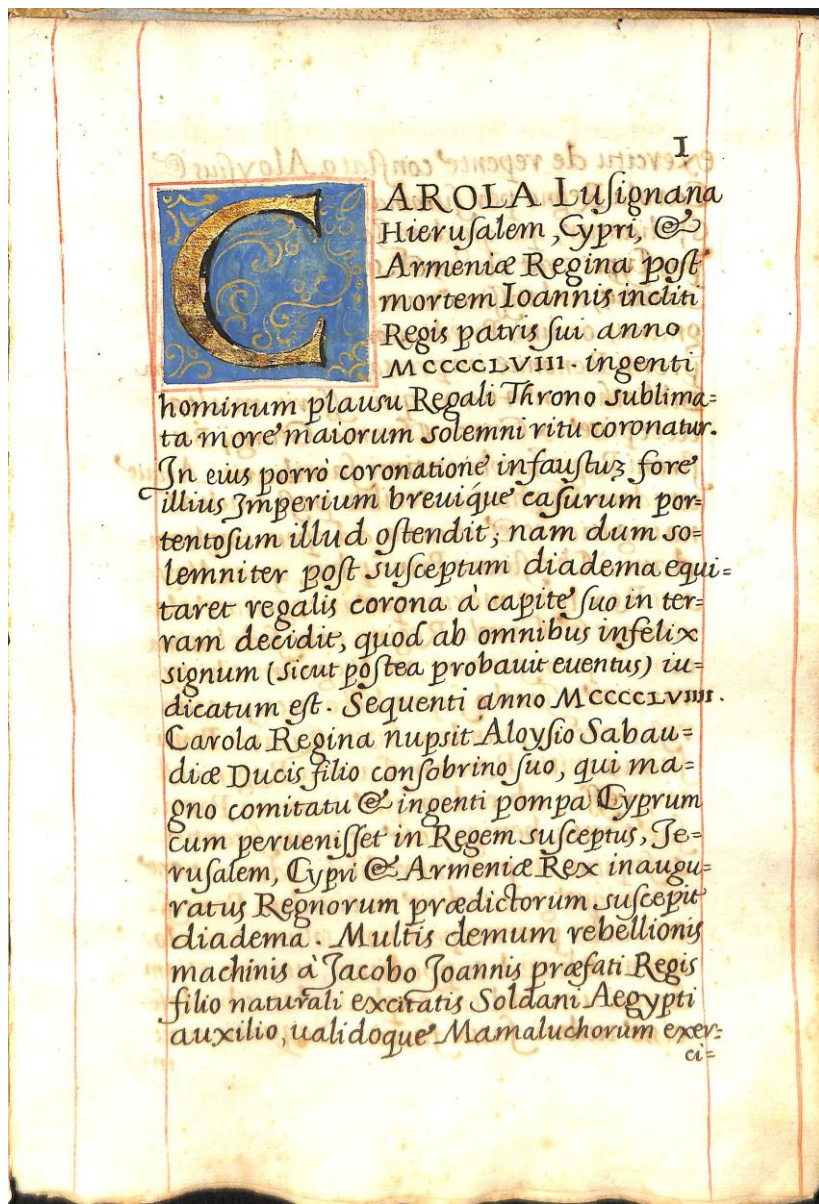 I
CAROLA Luſignana
Hieruſalem, Cypri, &
Armeniæ Regina poſt
mortem Ioannis incliti
Regis patris ſui anno
MCCCCLVIII. ingenti
hominum plauſu Regali Throno sublima=
ta more maiorum solemni ritu coronatur.
In eius porrò coronatione infauſtuꝫ fore
illius Imperium breuíque caſurum por=
tentosum illud oſtendit; nam dum so=
lemniter poſt susceptum diadema equi=
taret regalis corona à capite ſuo in ter=
ram decidit, quod ab omnibus infelix
signum (sicut poſtea probauit euentus) iu=
dicatum eſt. Sequenti anno MCCCCLVIIII.
Carola Regina nupsit Aloyſio Sabau=
diæ Ducis filio conſobrino ſuo, qui ma=
gno comitatu & ingenti pompa Cyprum
cum perueniſſet in Regem susceptus, Je=
ruſalem, Cypri & Armeniæ Rex inaugu=
ratus Regnorum prædictorum suſcepit
diadema. Multis demum rebellionis
machinis à Jacobo Joannis præfati Regis
filio naturali excitatis Soldani Aegypti
auxilio, ualidoque Mamaluchorum exer=
ci=